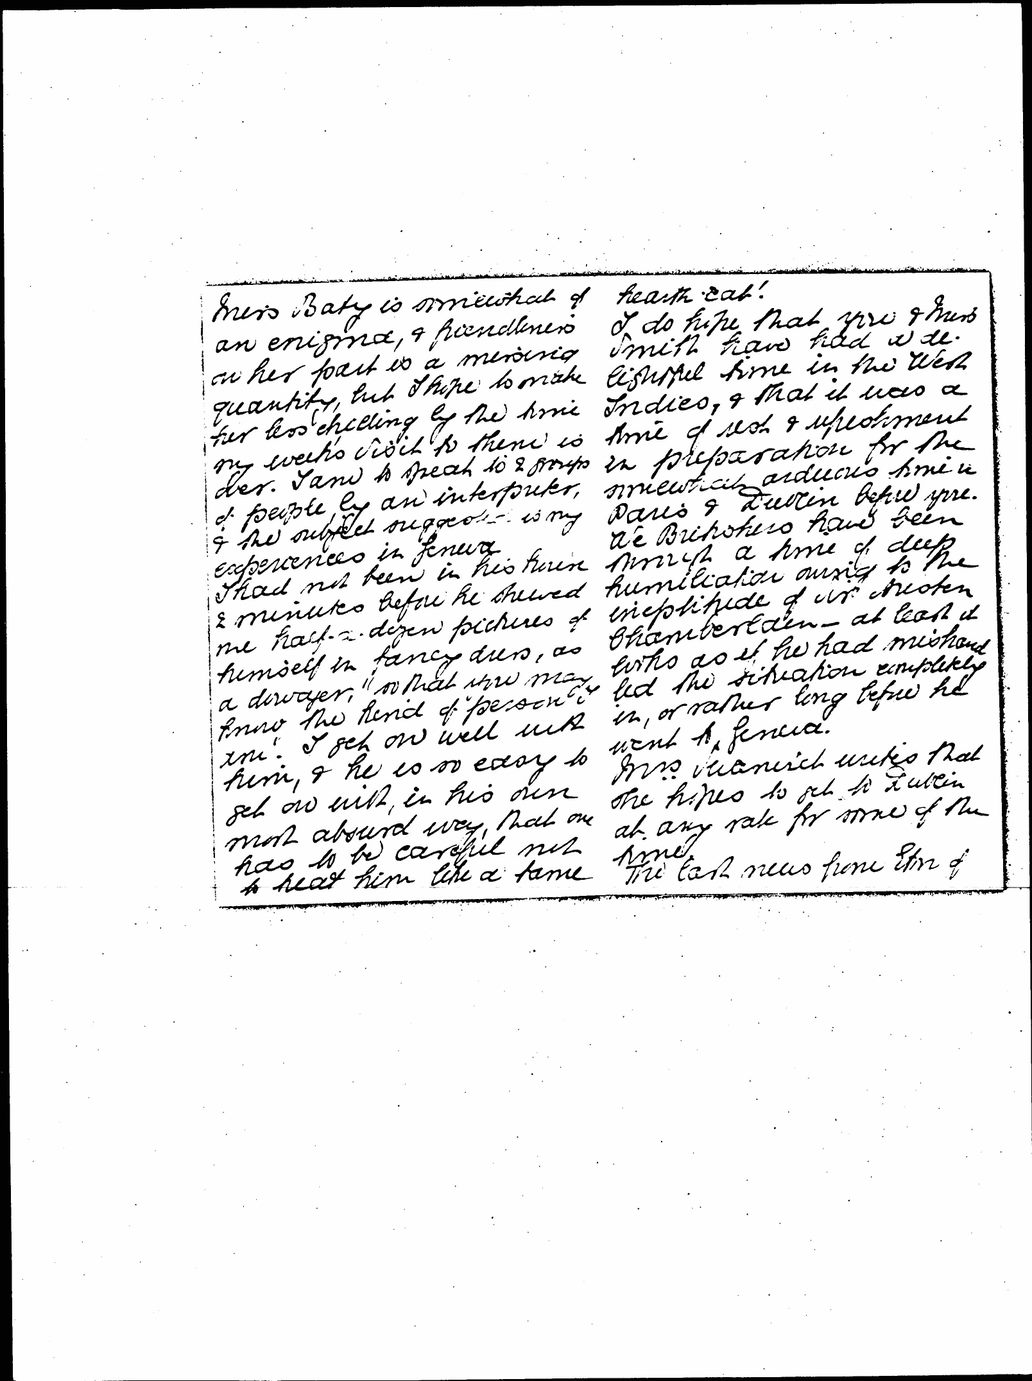 Miss Baty is somewhat of
an enigma, & friendliness
on her part is a missing
quantity, but I hope to make
her less chilling by the time
my week's visit to them is
over. I am to speak to 2 groups
of people, by an interpreter,
& the subject suggested is my
experiences in Geneva
I had not been in his house
2 minutes before he shewed
me half-a-dozen pictures of
himself in fancy dress, as
a dowager, "so that you may
know the kind of person I
am". I get on well with
him, & he is so easy to
get on with, in his own
most absurd way, that one
has to be careful not
to treat him like a tame
hearth-cat!
I do hope that you & Miss
Smith have had a de-
lightful time in the West
Indies, & that it was a
time of rest & refreshment
in preparation for the
somewhat arduous time in
Paris & Dublin before you.
We Britishers have been
through a time of deep
humiliation owing to the
ineptitude of Sir Austen
Chamberlain - at least it
looks as if he had mishand
led the situation completely
in, or rather long before he
went to, Geneva.
Miss writes that
she hopes to get to Dublin
at any rate for some of the
time.
The last news from of